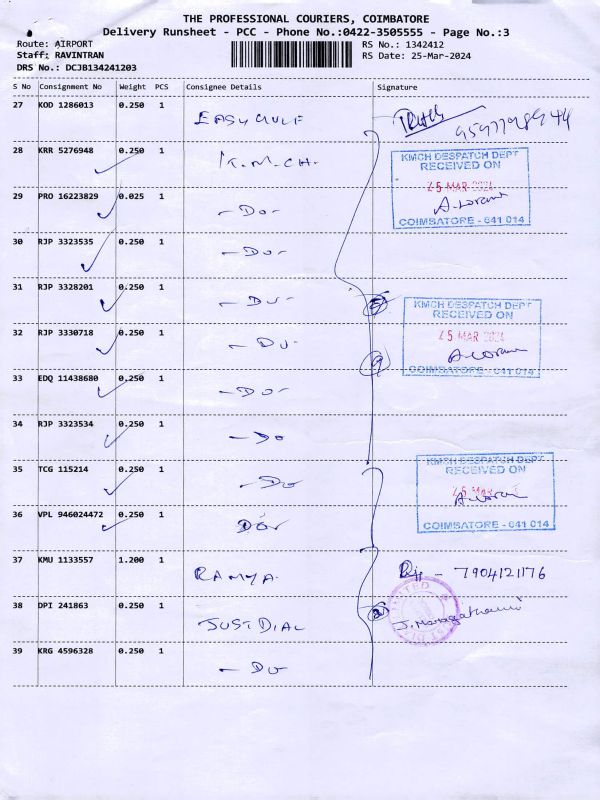 THE PROFESSIONAL COURIERS, COIMBATORE
Delivery Runsheet - PCC - Phone No.:0422-3505555 - Page No.:3
Route: AIRPORT
RS No.: 1342412
Staff: RAVINTRAN
RS Date: 25-Mar-2024
DRS No.: DCJB134241203
S No Consignment No Weight PCS Consignee Details Signature
27 KOD 1286013 0.250 1
28 KRR 5276948 0.250 1 K.M.CH.
KMCH DESPATCH DEPT
RECEIVED ON
25 MAR 2024
COIMBATORE - 641 014
29 PRO 16223829 0.025 1 - Do -
30 RJP 3323535 0.250 1 - Do -
31 RJP 3328201 0.250 1 - Do -
KMCH DESPATCH DEPT
RECEIVED ON
25 MAR 2024
COIMBATORE - 641 014
32 RJP 3330718 0.250 1 - Do -
33 EDQ 11438680 0.250 1 - Do -
34 RJP 3323534 0.250 1 - Do
35 TCG 115214 0.250 1 - Do
KMCH DESPATCH DEPT
RECEIVED ON
25 MAR 2024
COIMBATORE - 641 014
36 VPL 946024472 0.250 1 Do -
37 KMU 1133557 1.200 1 RAMYA. - 7904121176
38 DPI 241863 0.250 1 JUST DIAL
39 KRG 4596328 0.250 1 - Do